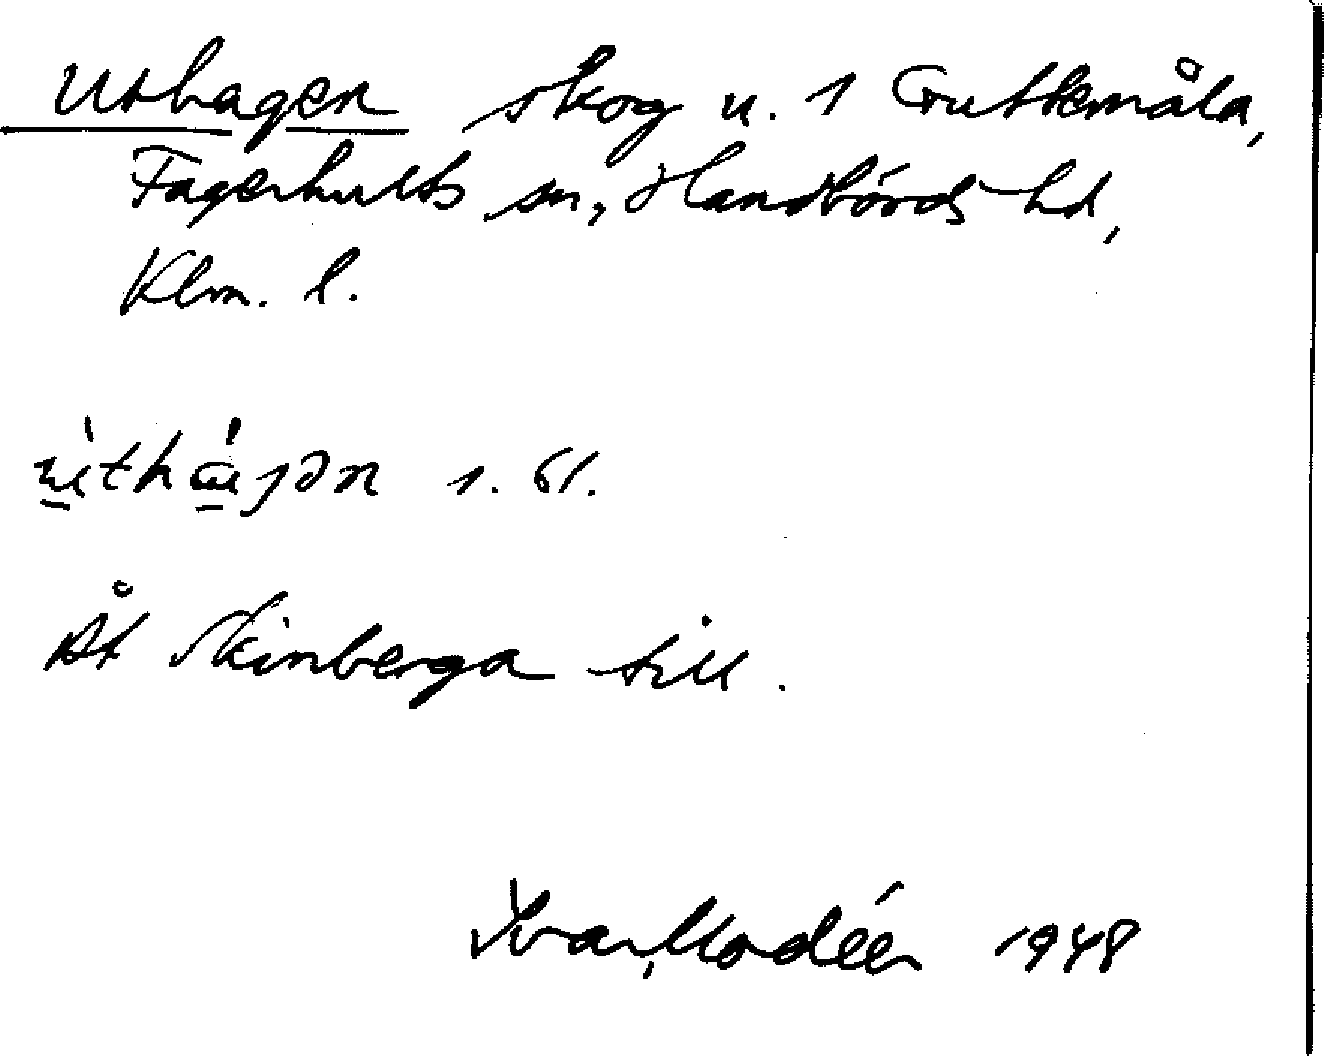 Uthagen skog u. 1 Gruttemåla,
Fagerhults sn, Handbörds hd,
Klm. l.
ùthɑ̀jən 1. 61.
Åt Skinberga till.
Ivar Modéer 1948